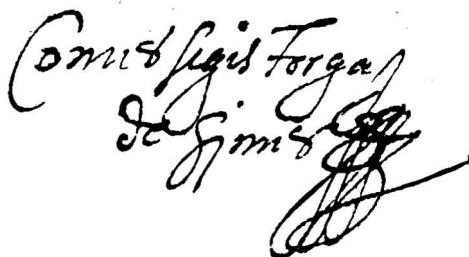 Comes Sigis Forga
de Gimes